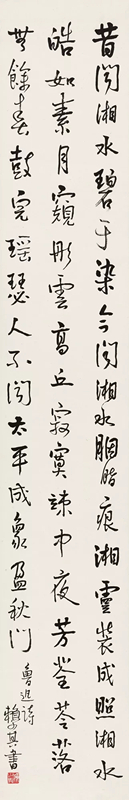 昔闻湘水碧于染今闻湘水胭脂痕湘灵装成照湘水
皓如素月窥彤云高丘寂寞竦中夜芳荃苓落
无馀春鼓完瑶瑟人不闻太平成象盈秋门
鲁迅诗
赖少其书